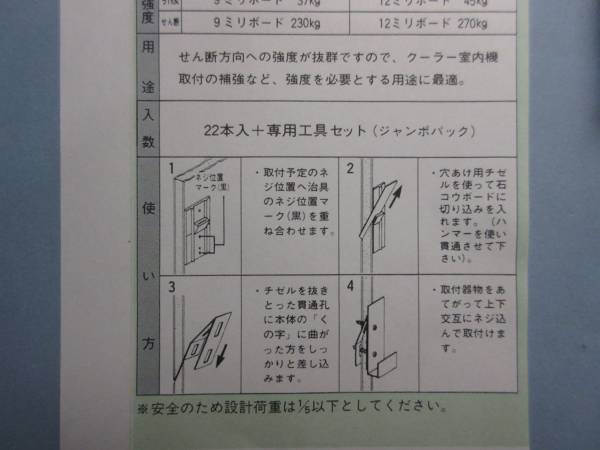 強度
9ミリボード 37kg
12ミリボード 45kg
せん断
9ミリボード 230kg
12ミリボード 270kg
用途
せん断方向への強度が抜群ですので、クーラー室内機
取付の補強など、強度を必要とする用途に最適。
入数
22本入+専用工具セット(ジャンボパック)
使い方
1
ネジ位置
マーク(黒)
・取付予定のネ
ジ位置へ治具
のネジ位置マ
ーク(黒)を重
ね合わせます。
2
・穴あけ用チゼ
ルを使って石
コウボードに
切り込みを入
れます。(ハ
ンマーを使い
貫通させて下
さい)。
3
・チゼルを抜き
とった貫通孔
に本体の「く
の字」に曲が
った方をしっ
かりと差し込
みます。
4
・取付器物をあ
てがって上下
交互にネジ込
んで取付けま
す。
※安全のため設計荷重は1/5以下としてください。